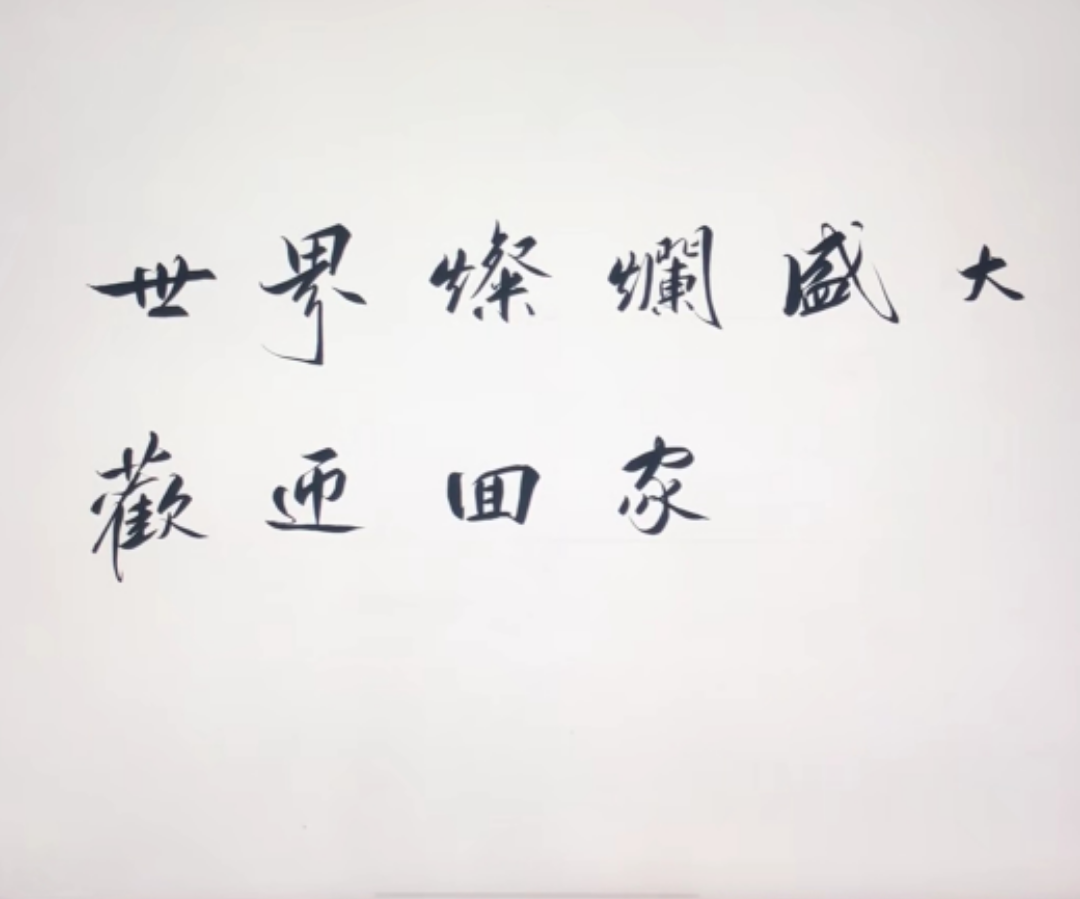 世界燦爛盛大
歡迎回家